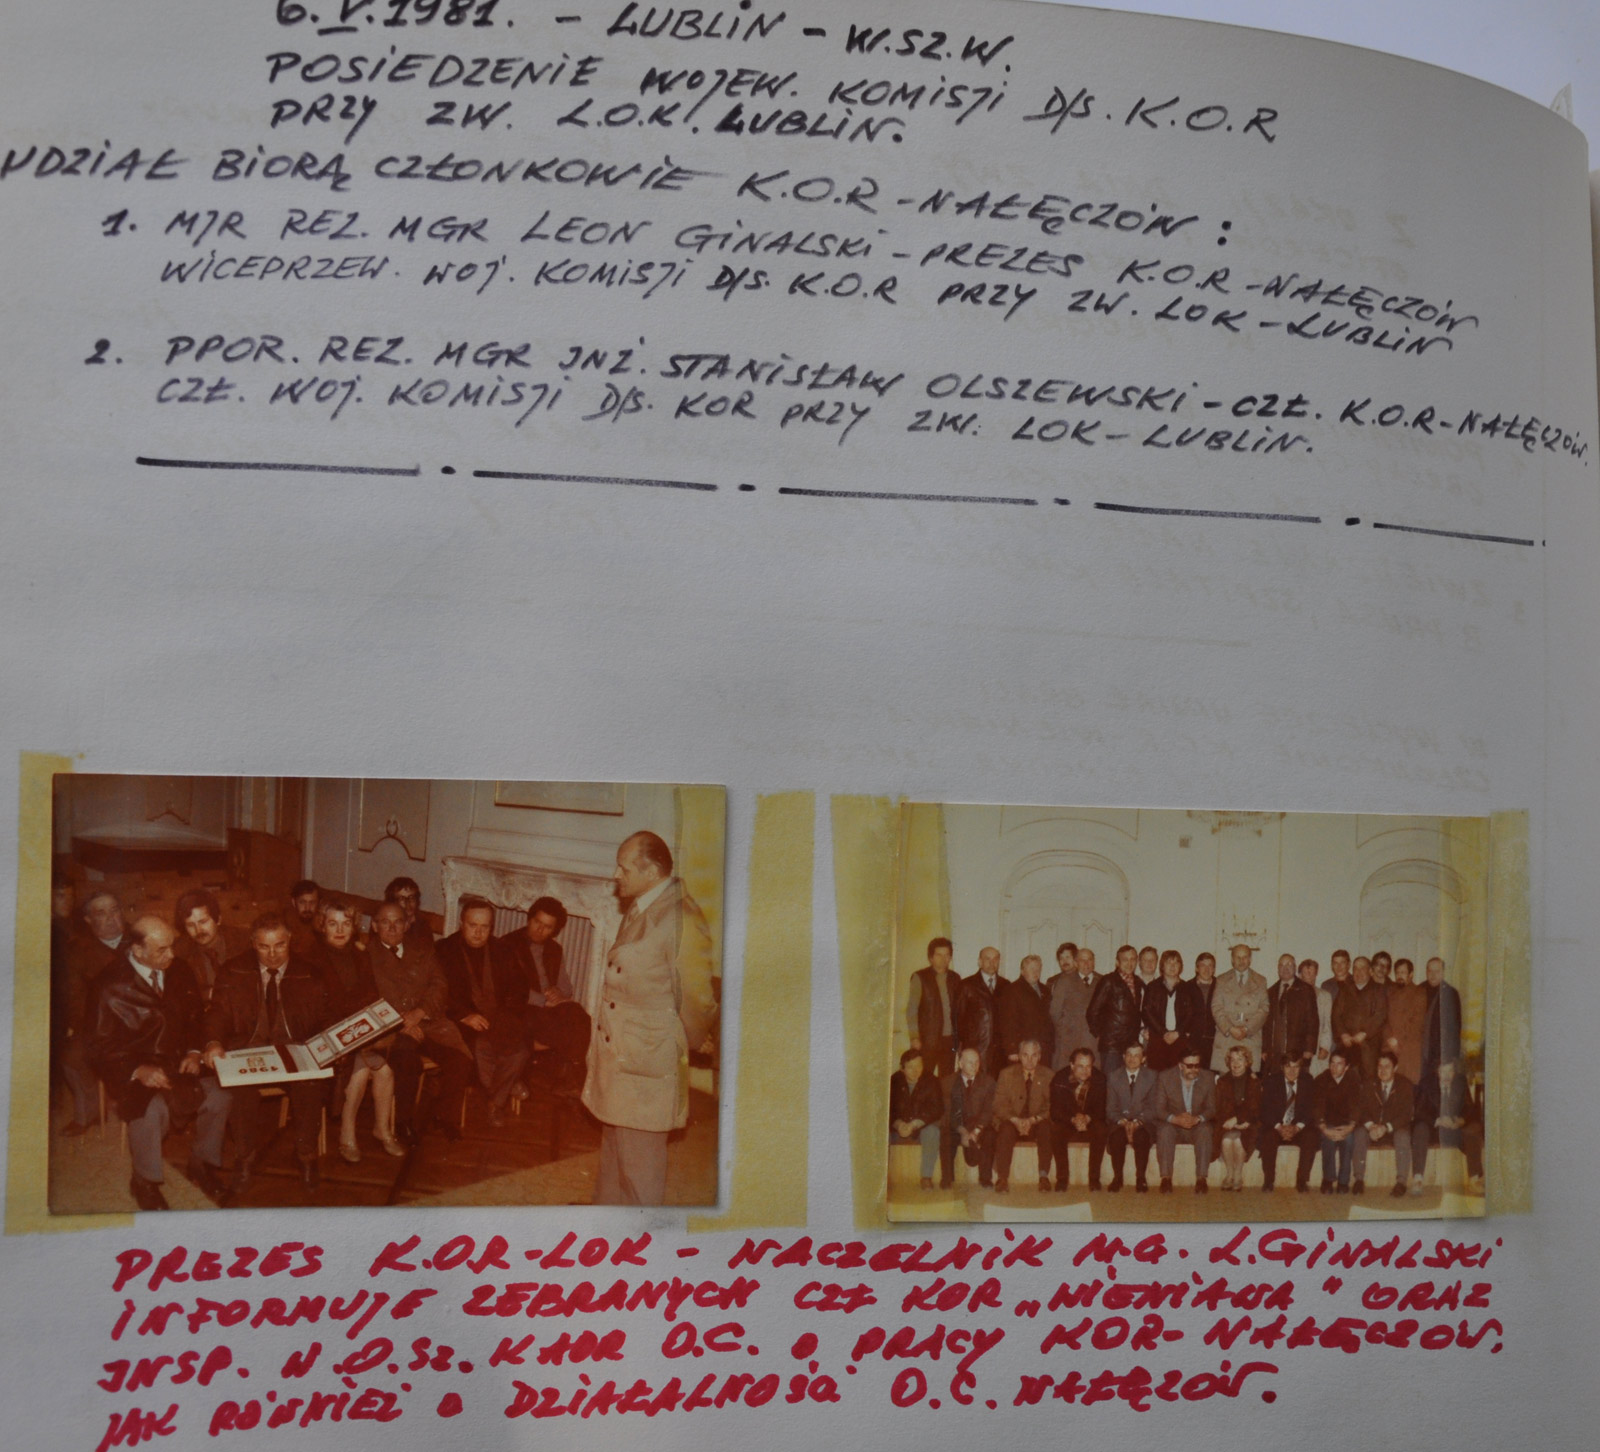 6.V.1981. – LUBLIN – W.SZ.W.
POSIEDZENIE WOJEW. KOMISJI D/S. K.O.R
PRZY ZW. L.O.K. LUBLIN.
UDZIAŁ BIORĄ CZŁONKOWIE K.O.R – NAŁĘCZÓW :
1. MJR REZ. MGR LEON GINALSKI – PREZES K.O.R – NAŁĘCZÓW
WICEPRZEW. WOJ. KOMISJI D/S. K.O.R PRZY ZW. LOK – LUBLIN
2. PPOR. REZ. MGR INŻ. STANISŁAW OLSZEWSKI – CZŁ. K.O.R – NAŁĘCZÓW.
CZŁ. WOJ. KOMISJI D/S. KOR PRZY ZW. LOK – LUBLIN.
1980
PREZES K.O.R – LOK – NACZELNIK M.G. L.GINALSKI
INFORMUJE ZEBRANYCH CZŁ KOR „NIENIAWA" ORAZ
INSP. W.O.SZ. KADR O.C. O PRACY KOR – NAŁĘCZÓW,
JAK RÓWNIEŻ O DZIAŁALNOŚCI O.C. NAŁĘCZÓW.